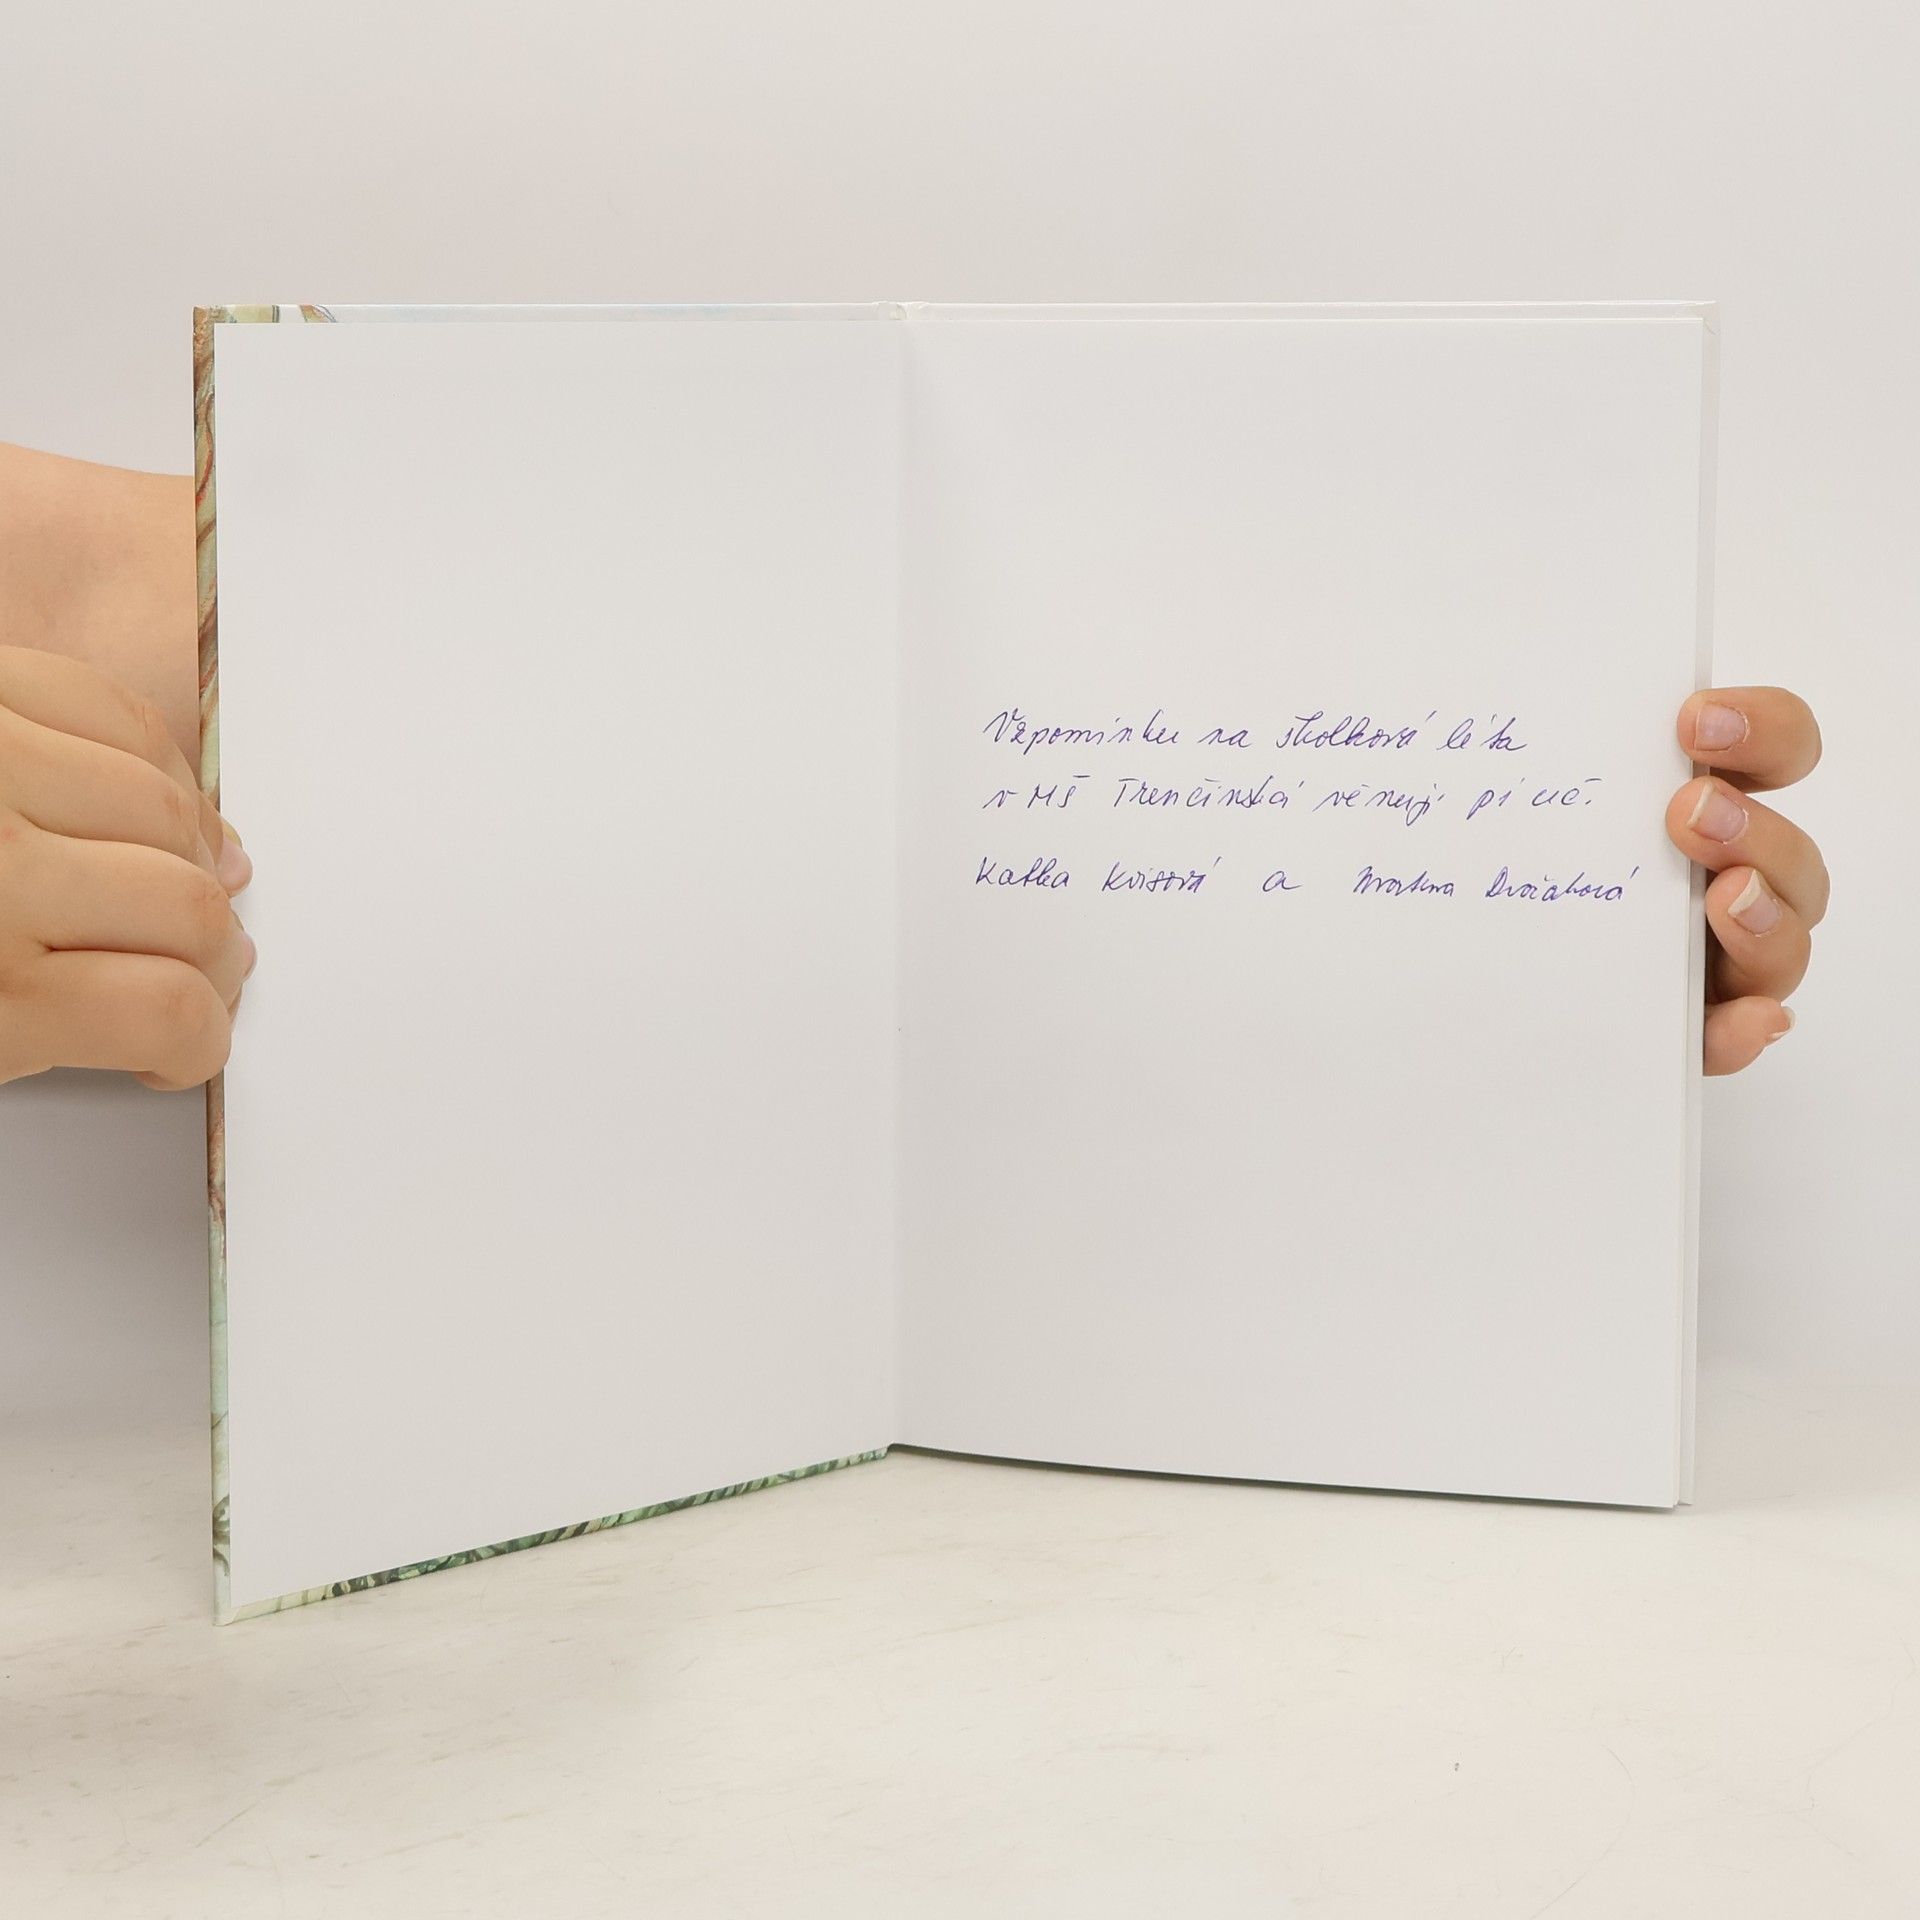 Vzpomínku na školková léta
v MŠ Trenčínská věnují pí uč.
Katka Kvisová a Martina Dvořáková